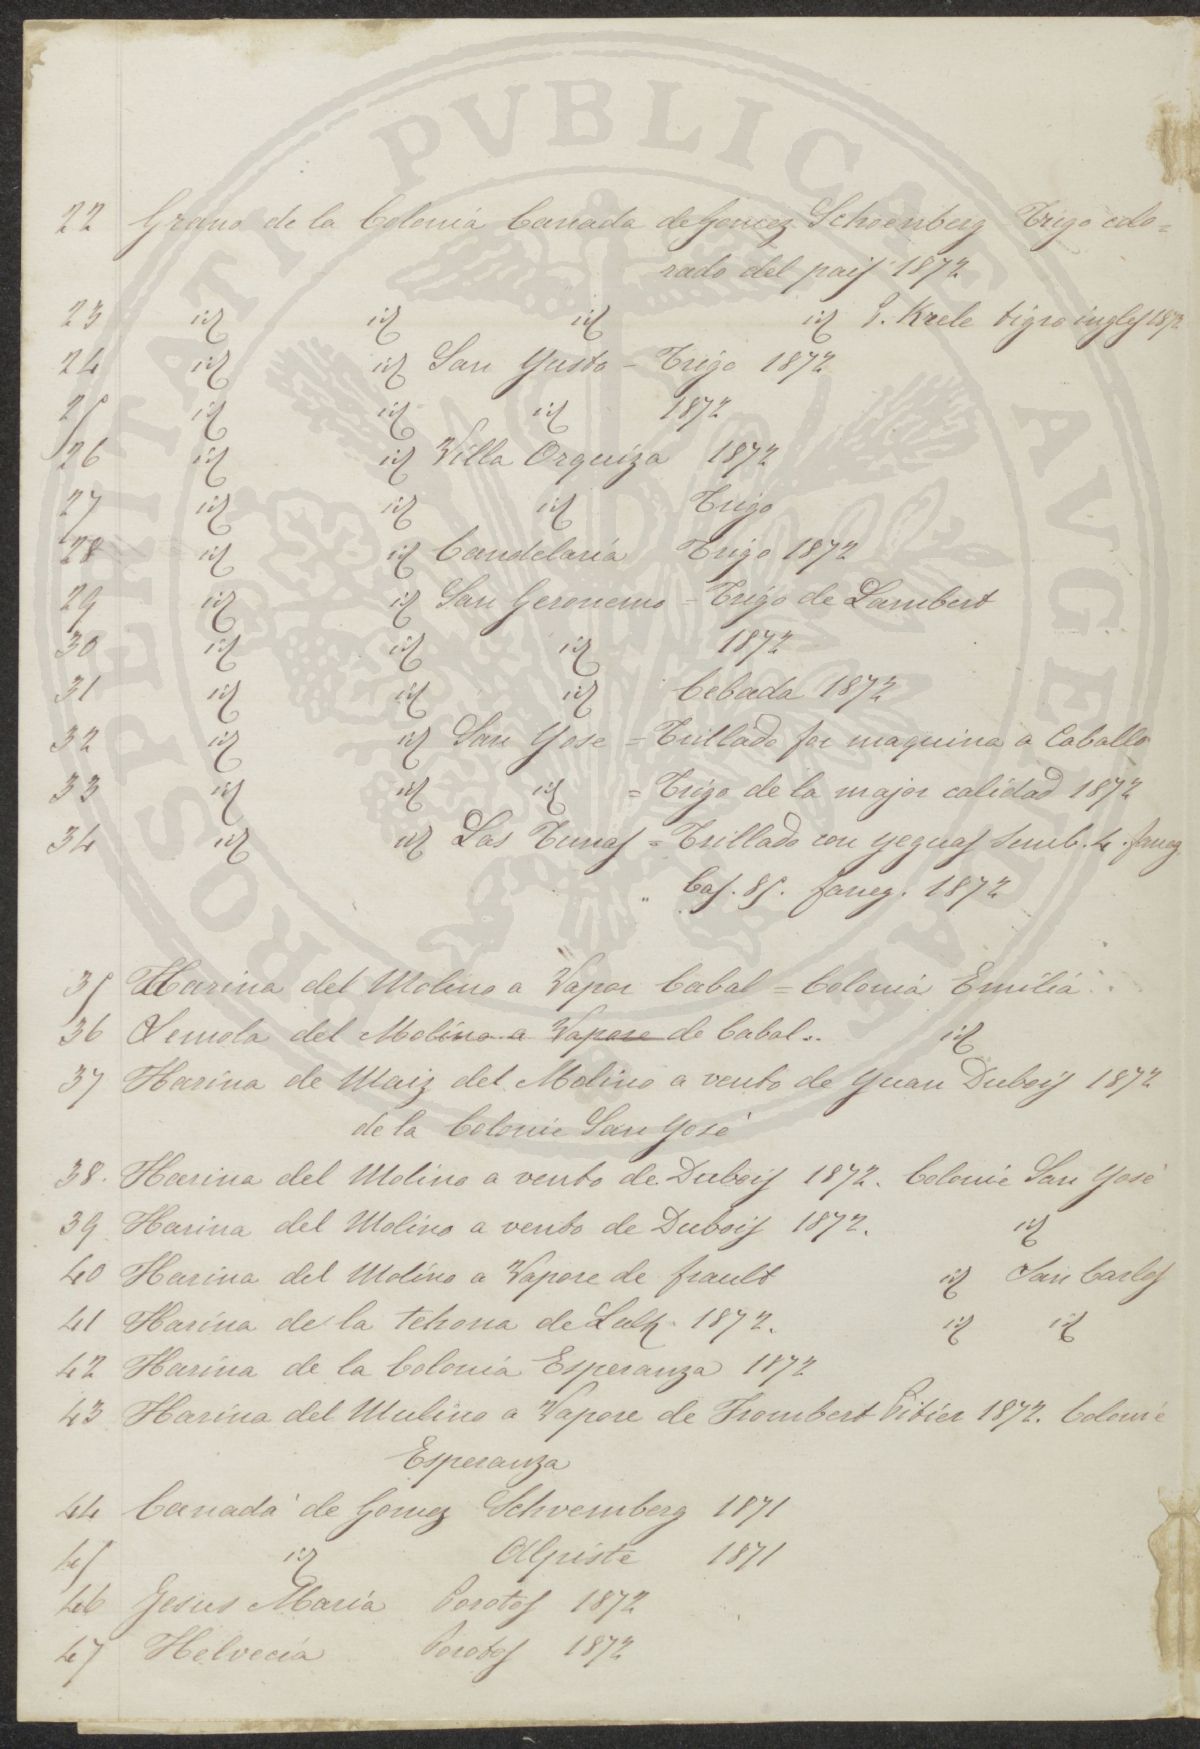 PROSPERITATI PVBLICAE AVGENDAE
22 Grano de la Colonia Canada de Gomez Schoenberg Trigo colo=
rado del pais 1872
23 id id id id G. Krele tigro ingles 1872
24 id id San Gusto - Trigo 1872
25 id id id 1872
26 id id Villa Orquiza 1872
27 id id id Trigo
28 id id Candelaria Trigo 1872
29 id id San Geronemo - Trigo de Lambert
30 id id id 1872
31 id id id Cebada 1872
32 id id San Yose = Trillado for maquina a Caballo
33 id id id = Trigo de la major calidad 1872
34 id id Las Tunas = Trillado con yeguas Semb. 4. faneg
" Cos. 85. faneg. 1872
35 Harina del Molino a Vapor Cabal = Colonia Emilia
36 Semola del Molino a Vapore de Cabal.. id
37 Harina de Maiz del Molino a vento de Yuan Dubois 1872
de la Colonie San Yosé
38. Harina del Molino a vento de Dubois 1872. Colonie San Yosé
39 Harina del Molino a vento de Dubois 1872. id
40 Harina del Molino a Vapore de frault id San Carlos
41 Harina de la tehona de Lalk 1872. id id
42 Harina de la Colonia Esperanza 1872
43 Harina del Mulino a Vapore de Trombert Pitier 1872. Colonie
Esperanza
44 Canada de Gomez Schvemberg 1871
45 id Alpiste 1871
46 Jesus Maria Porotos 1872
47 Helvecia Porotos 1872